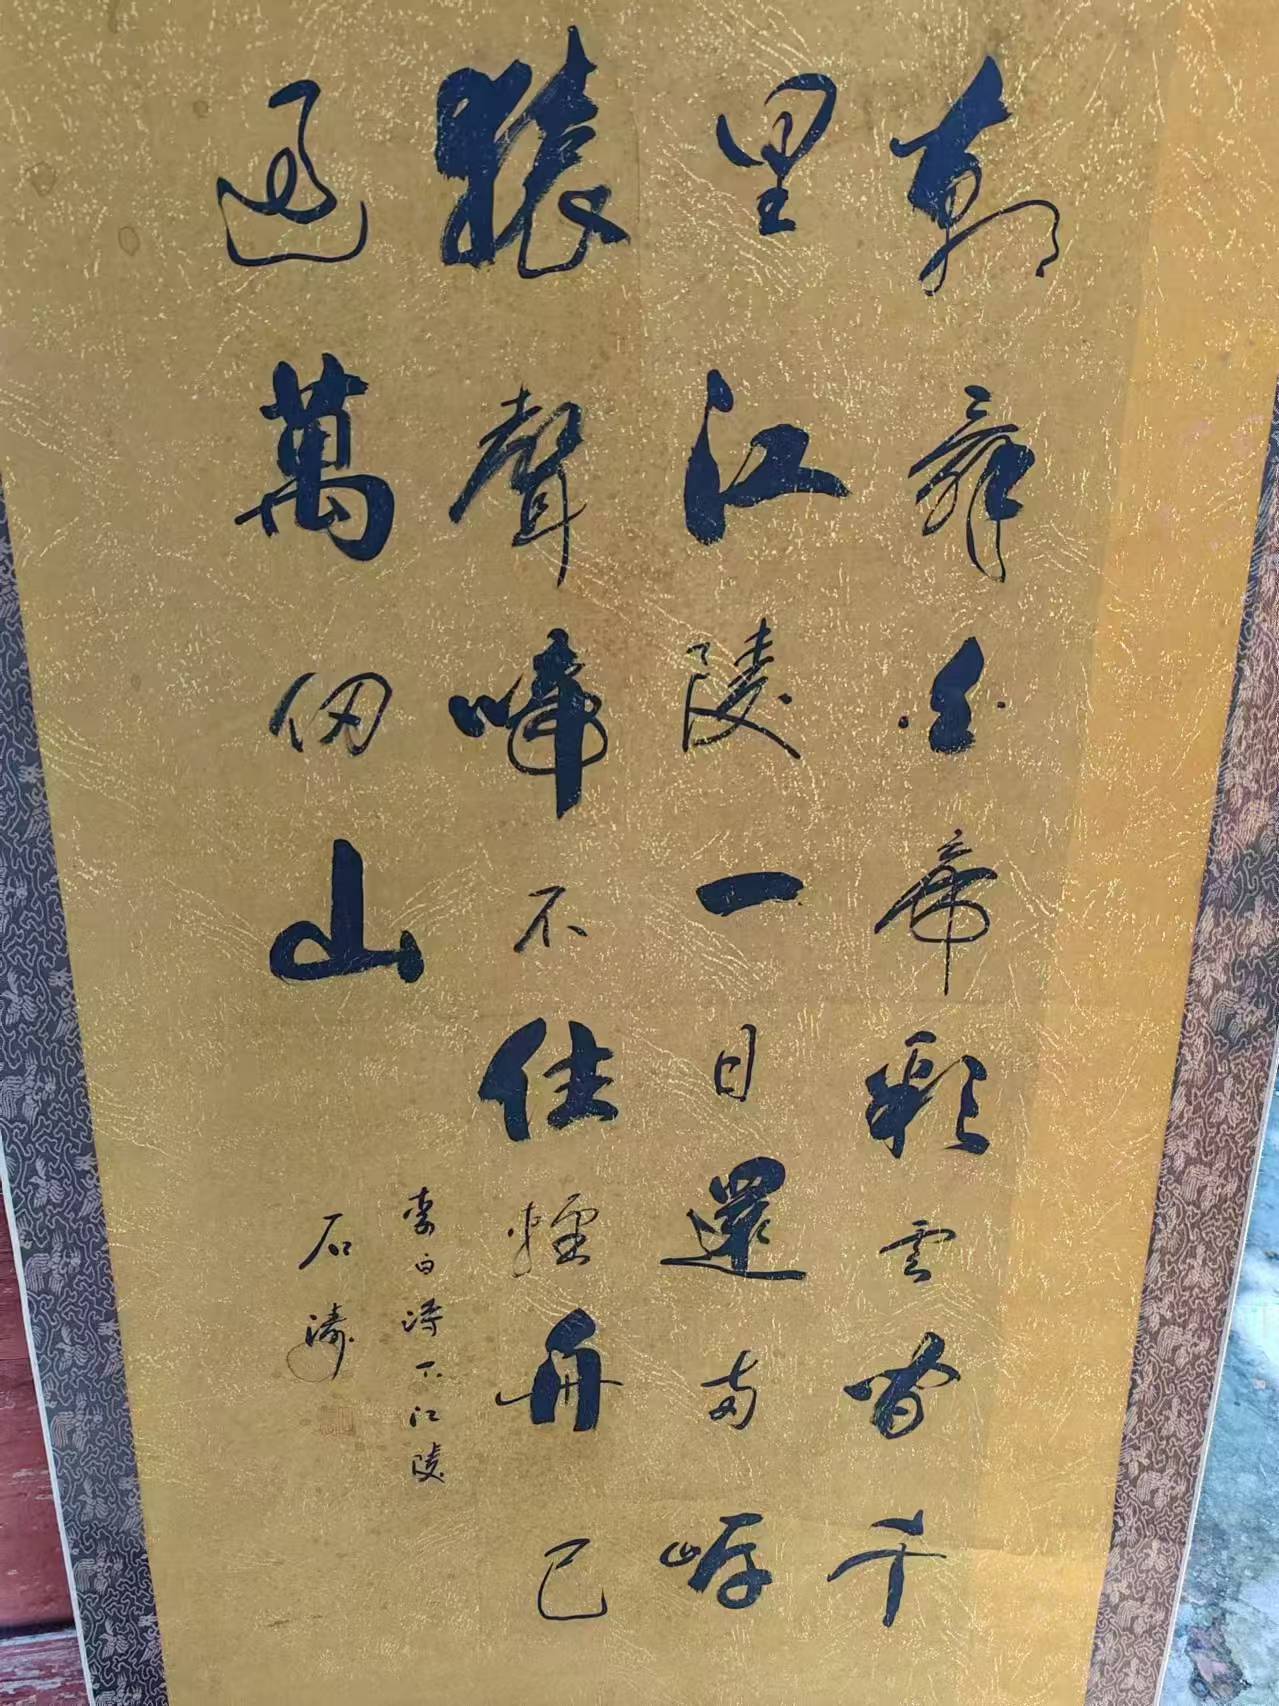 朝辞白帝彩雲間千
里江陵一日還两岸
猿聲啼不住輕舟已
過萬仞山
李白詩下江陵
石濤